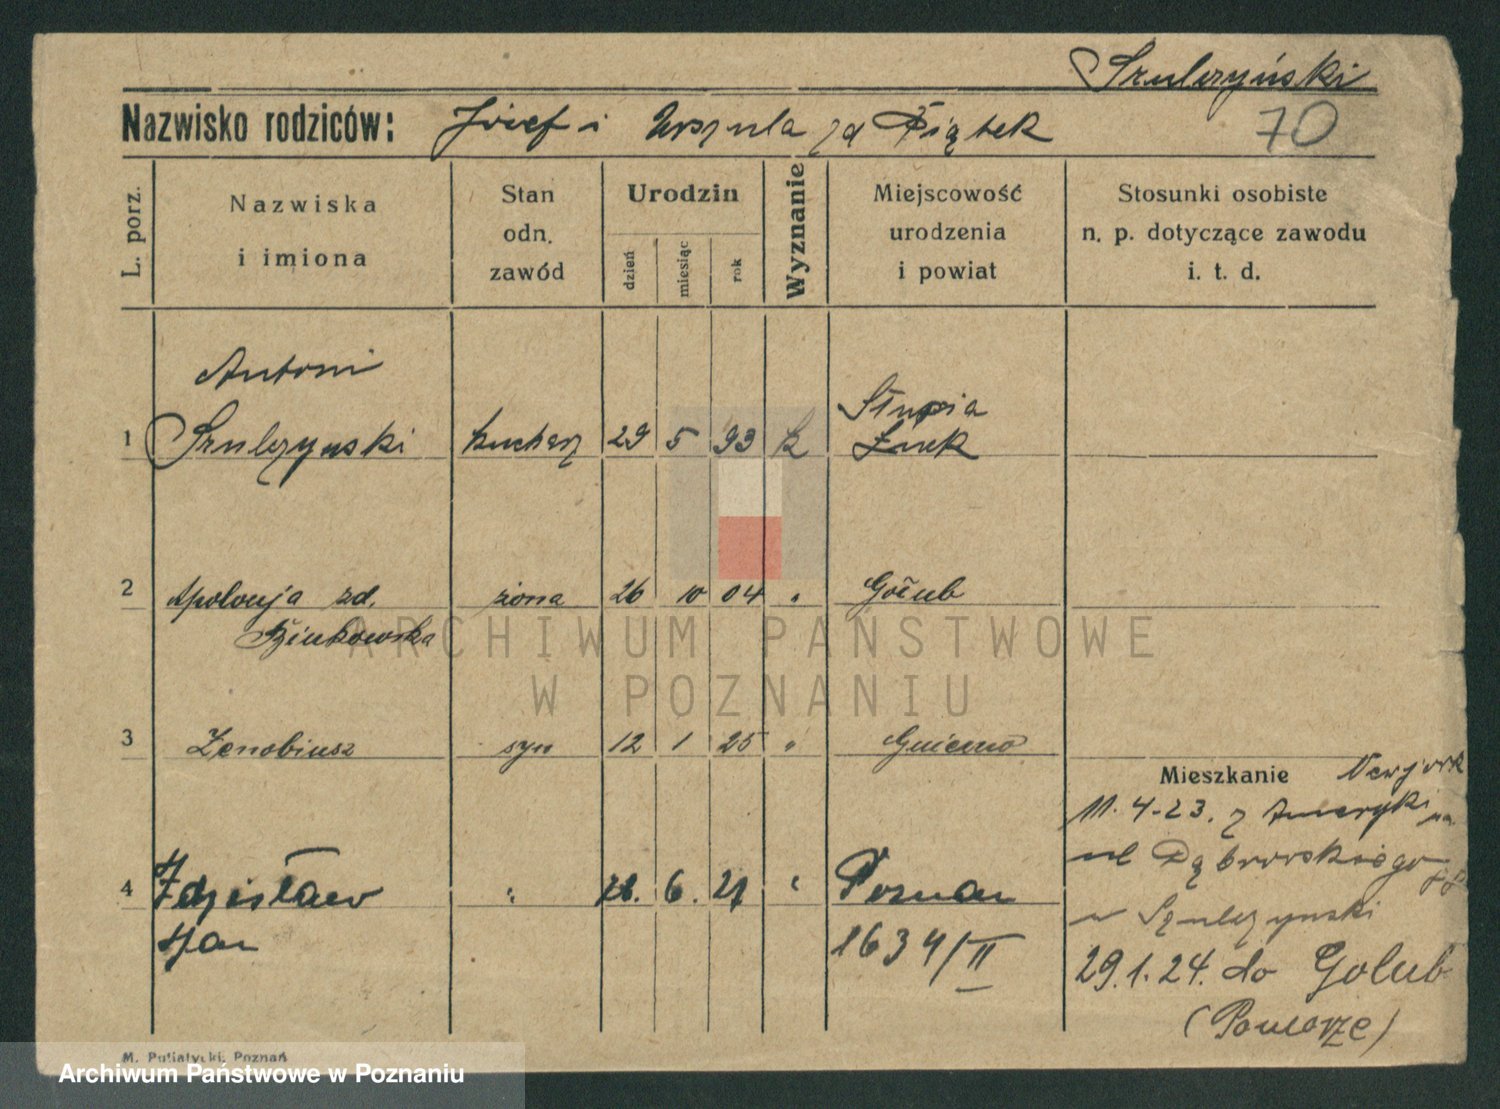 Szulczyński
Nazwisko rodziców: Józef i Urszula zd Piątek
70
L. porz.
Nazwiska
i imiona
Stan
odn.
zawód
Urodzin
dzień
miesiąc
rok
Wyznanie
Miejscowość
urodzenia
i powiat
Stosunki osobiste
n. p. dotyczące zawodu
i. t. d.
Antoni
1 Szulczynski kucharz 29 5 93 k
Słupia
2 Apolonja zd. żona 26 10 04 " Gołub
3 Zenobiusz syn 12 1 25 " Gniewo
Mieszkanie Nerjork
11.4-23. z Ameryki na
ul Dąbrowskiego
w Szulczynski
29.1.24. do Golub
(Pomorze)
4 Zdzisław " 6. 27 " Poznan
Jan
1634/II
ARCHIWUM PAŃSTWOWE
W POZNANIU
M. Putiatycki, Poznań
Archiwum Państwowe w Poznaniu